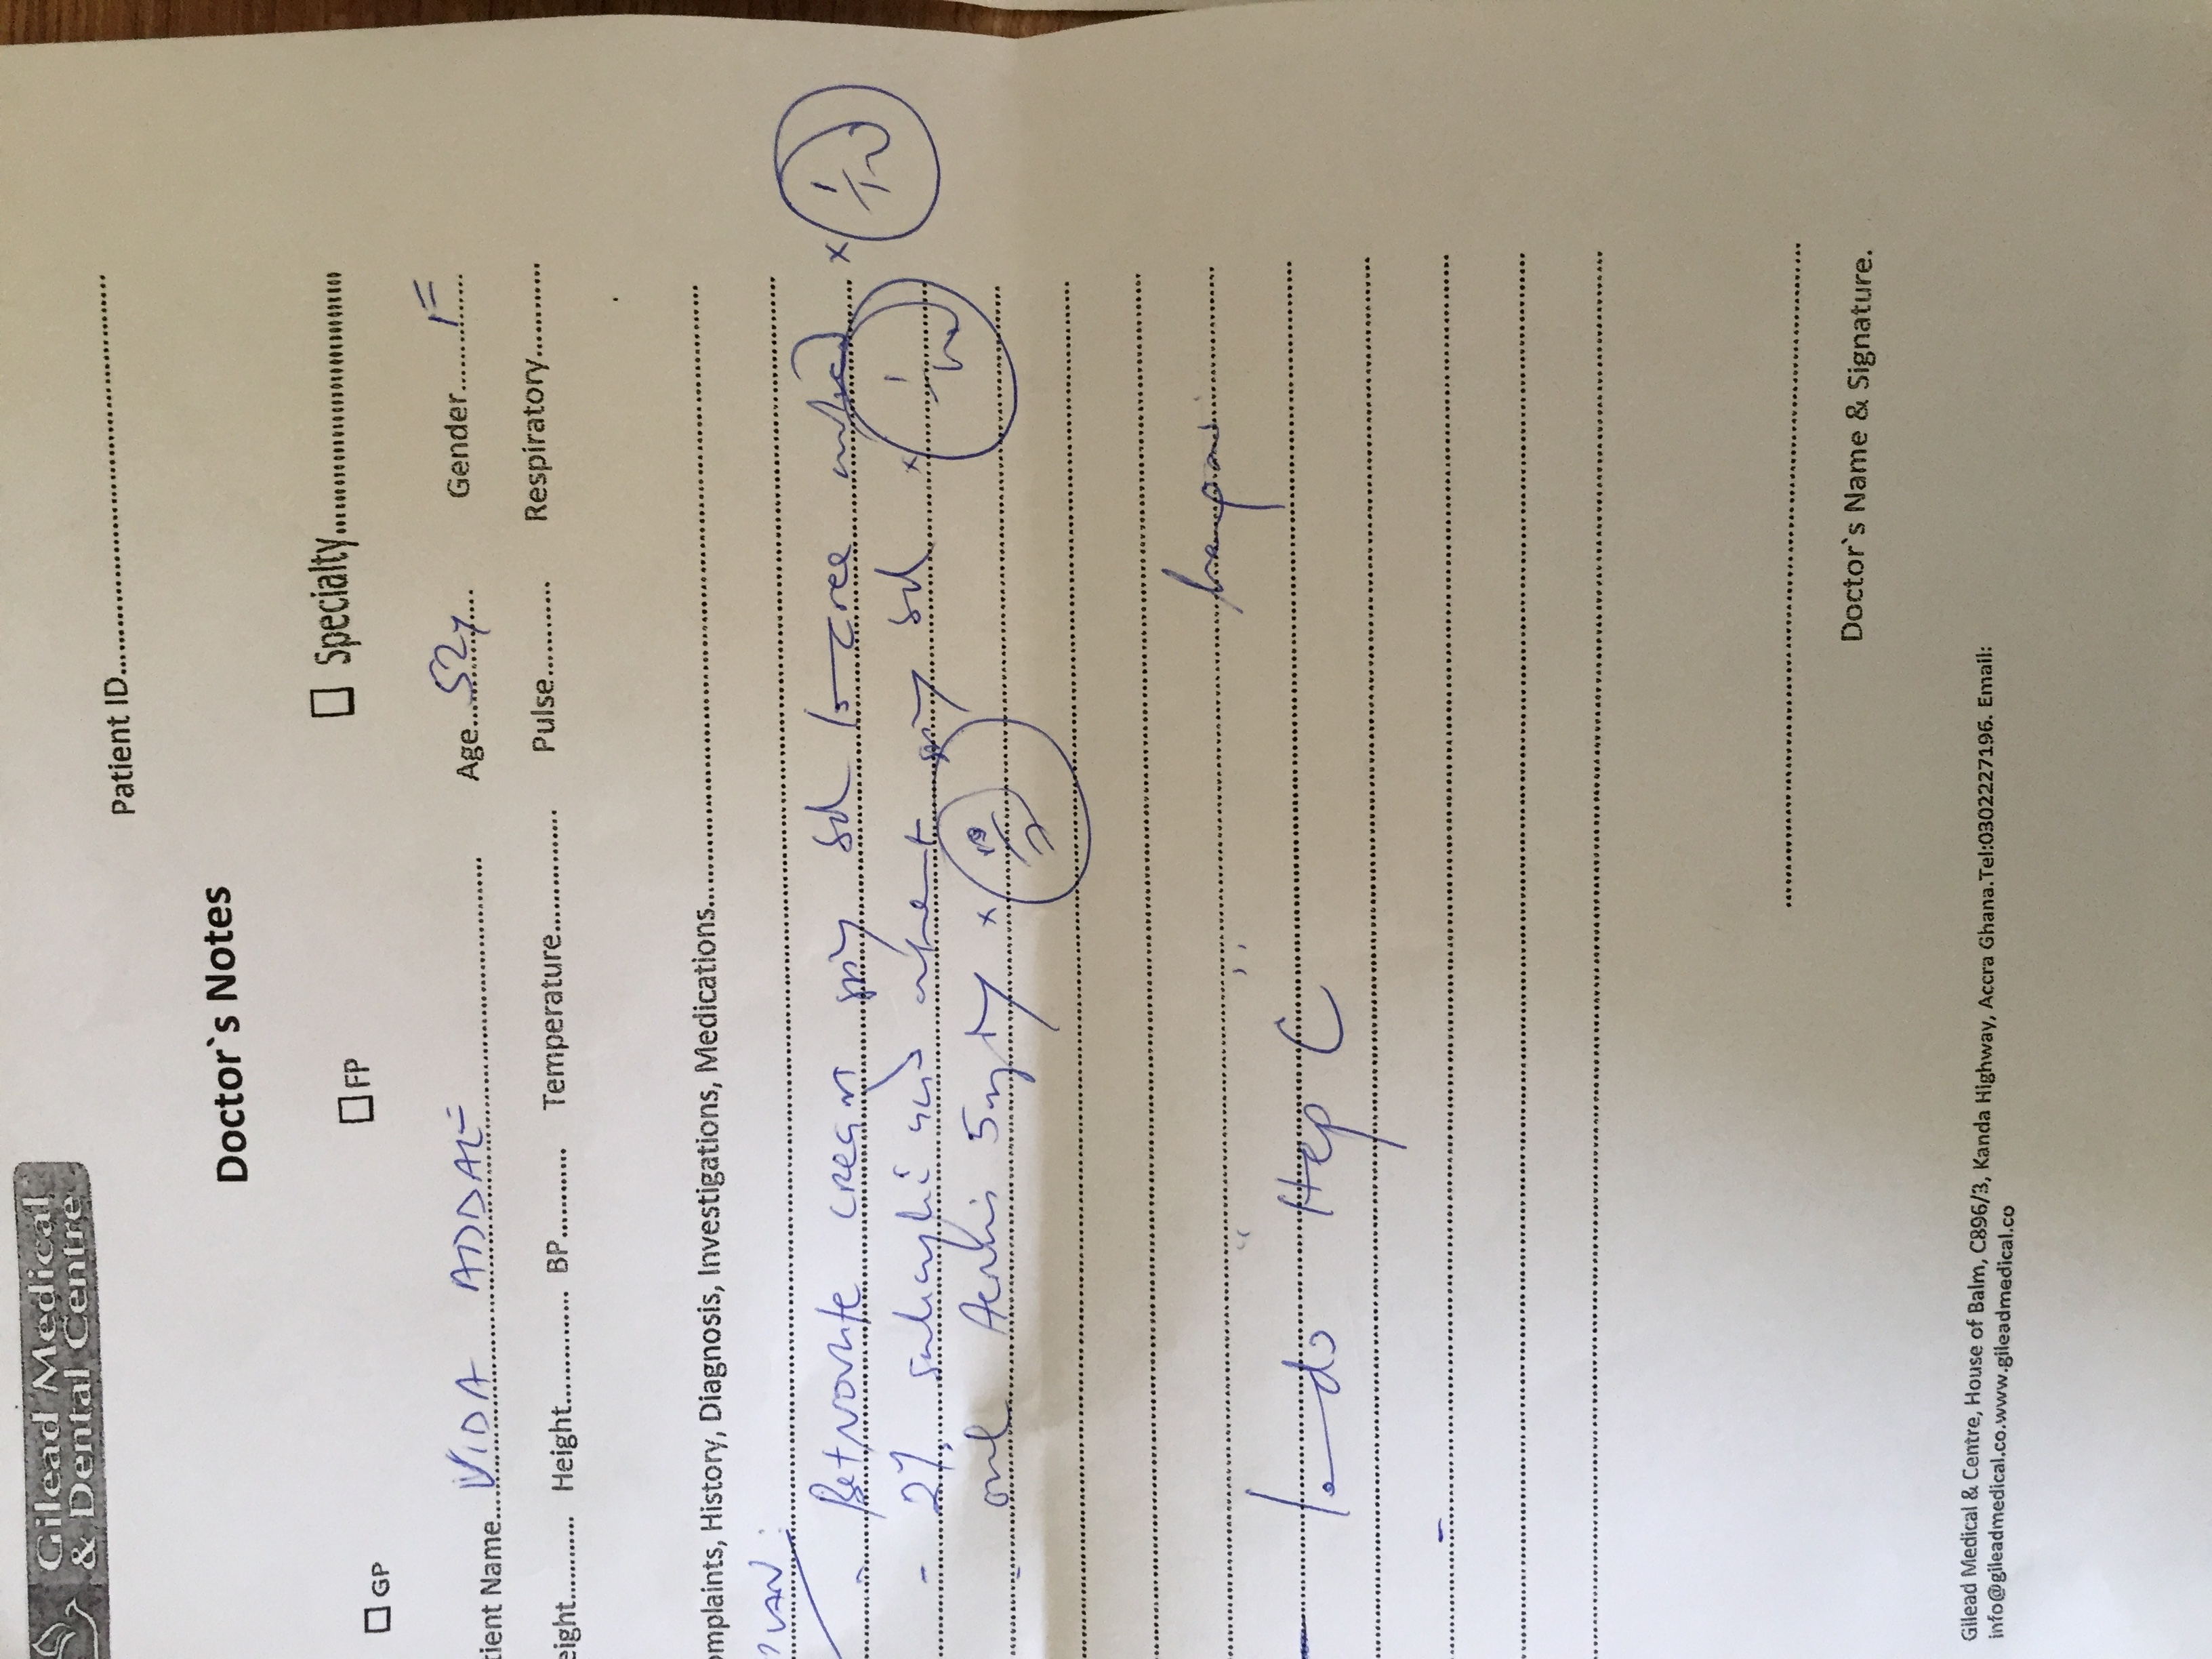 Gilead Medical
& Dental Centre
Patient ID
Doctor`s Notes
GP FP Specialty
tient Name VIDA ADDAE Age 52y Gender F
eight Height BP Temperature Pulse Respiratory
omplaints, History, Diagnosis, Investigations, Medications
PLAN:
- Betnovate cream bd x 1/12
- 2% salicylic acid ointment bd x 1/12
- oral Aerius 5mg x
- to do "Hep C"
Doctor`s Name & Signature.
Gilead Medical & Centre, House of Balm, C896/3, Kanda Highway, Accra Ghana.Tel:0302227196. Email:
info@gileadmedical.co.www.gileadmedical.co